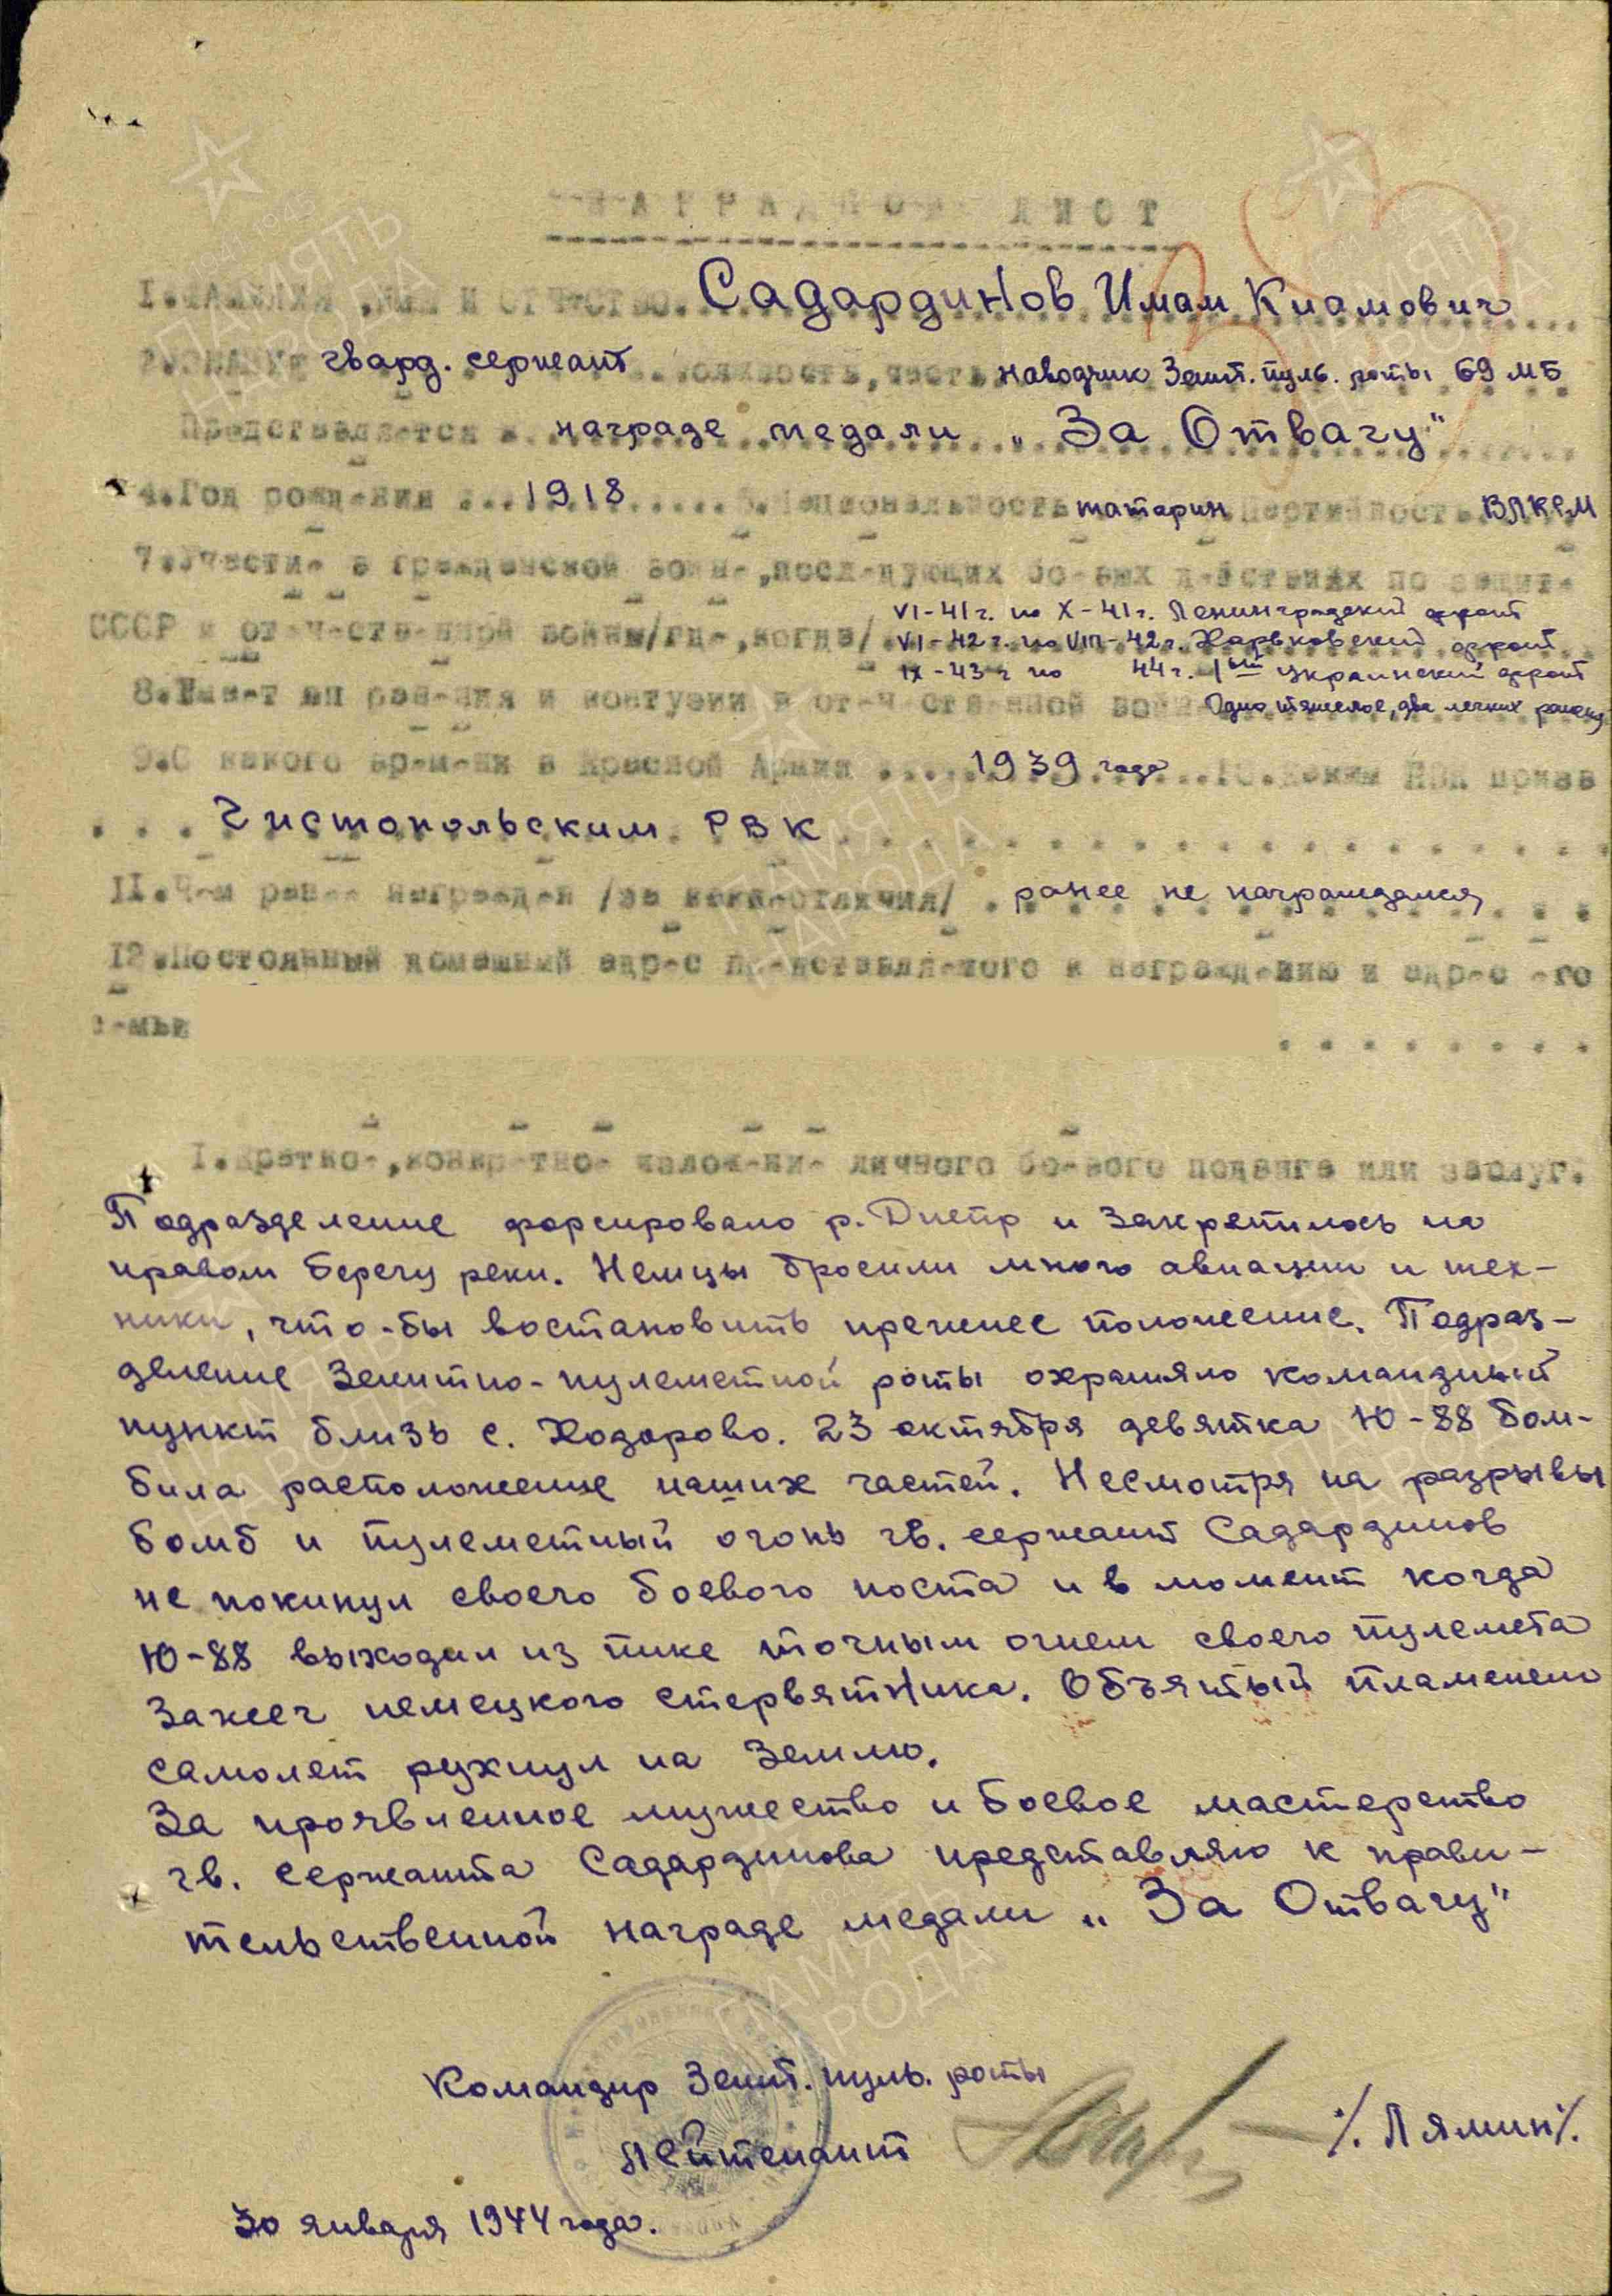 НАГРАДНОЙ ЛИСТ
1. Фамилия, имя и отчество. Садардинов Имам Киамович
2. Звание гвард. сержант должность, часть наводчик Зенит. пул. роты 69 МБ
Представляется к награде медали „За Отвагу"
4. Год рождения 1918 5. Национальность татарин Партийность ВЛКСМ
7. Участие в гражданской войне, последующих боевых действиях по защите
СССР и отечественной войне /где, когда/ VI-41 г. по X-41 г. Ленинградский фронт
VI-42 г. по VIII-42 г. Харьковский фронт
IX-43 г по 44 г. 1ый Украинский фронт
8. Имеет ли ранения и контузии в отечественной войне Одно тяжелое, два легких ранения
9. С какого времени в Красной Армии 1939 года 10. Каким РВК призв
Чистопольским РВК
11. Чем ранее награжден /за какие отличия/ ранее не награждался
12. Постоянный домашний адрес представляемого к награждению и адрес его
семьи
1. Краткое, конкретное изложение личного боевого подвига или заслуг.
Подразделение форсировало р. Днепр и закрепилось на
правом берегу реки. Немцы бросили много авиации и тех-
ники, что-бы востановить прежнее положение. Подраз-
деление Зенитно-пулеметной роты охраняло командный
пункт близь с. Ходорово. 23 октября девятка Ю-88 бом-
била расположение наших частей. Несмотря на разрывы
бомб и пулеметный огонь гв. сержант Садардинов
не покинул своего боевого поста и в момент когда
Ю-88 выходил из пике точным огнем своего пулемета
зажег немецкого стервятника. Объятый пламенем
самолет рухнул на землю.
За проявленное мужество и боевое мастерство
гв. сержанта Садардинова представляю к прави-
тельственной награде медали „За Отвагу"
Командир Зенит. пуль. роты
Лейтенант /Лямин/.
30 января 1944 года.
ПАМЯТЬ
НАРОДА